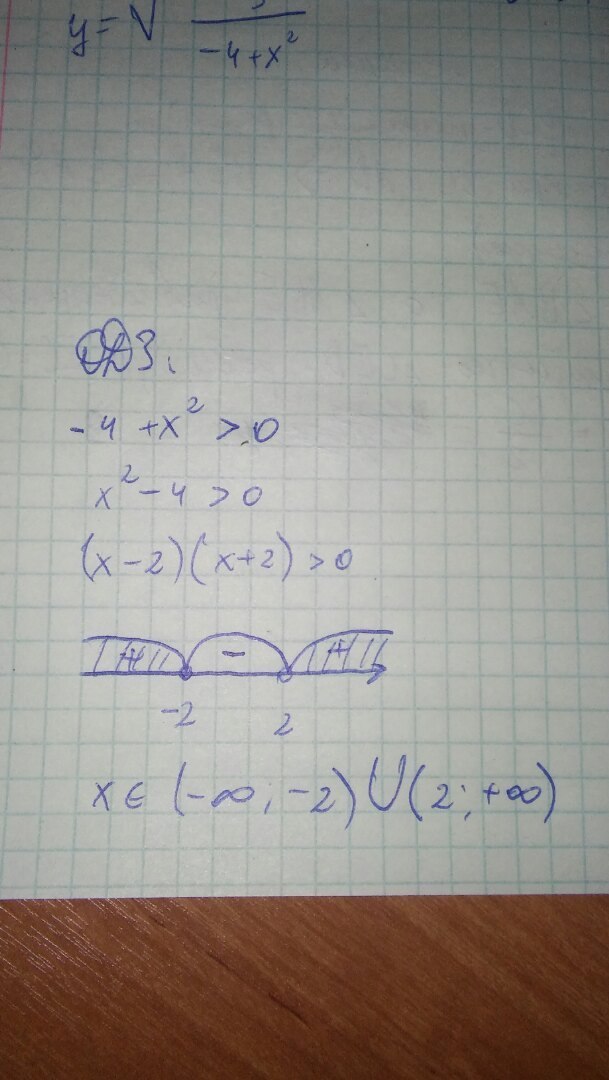 y = √ /(-4+x²)
ОДЗ.
-4 + x² > 0
x² - 4 > 0
(x-2)(x+2) > 0
+ - +
-2 2
x ∈ (-∞; -2) ∪ (2; +∞)